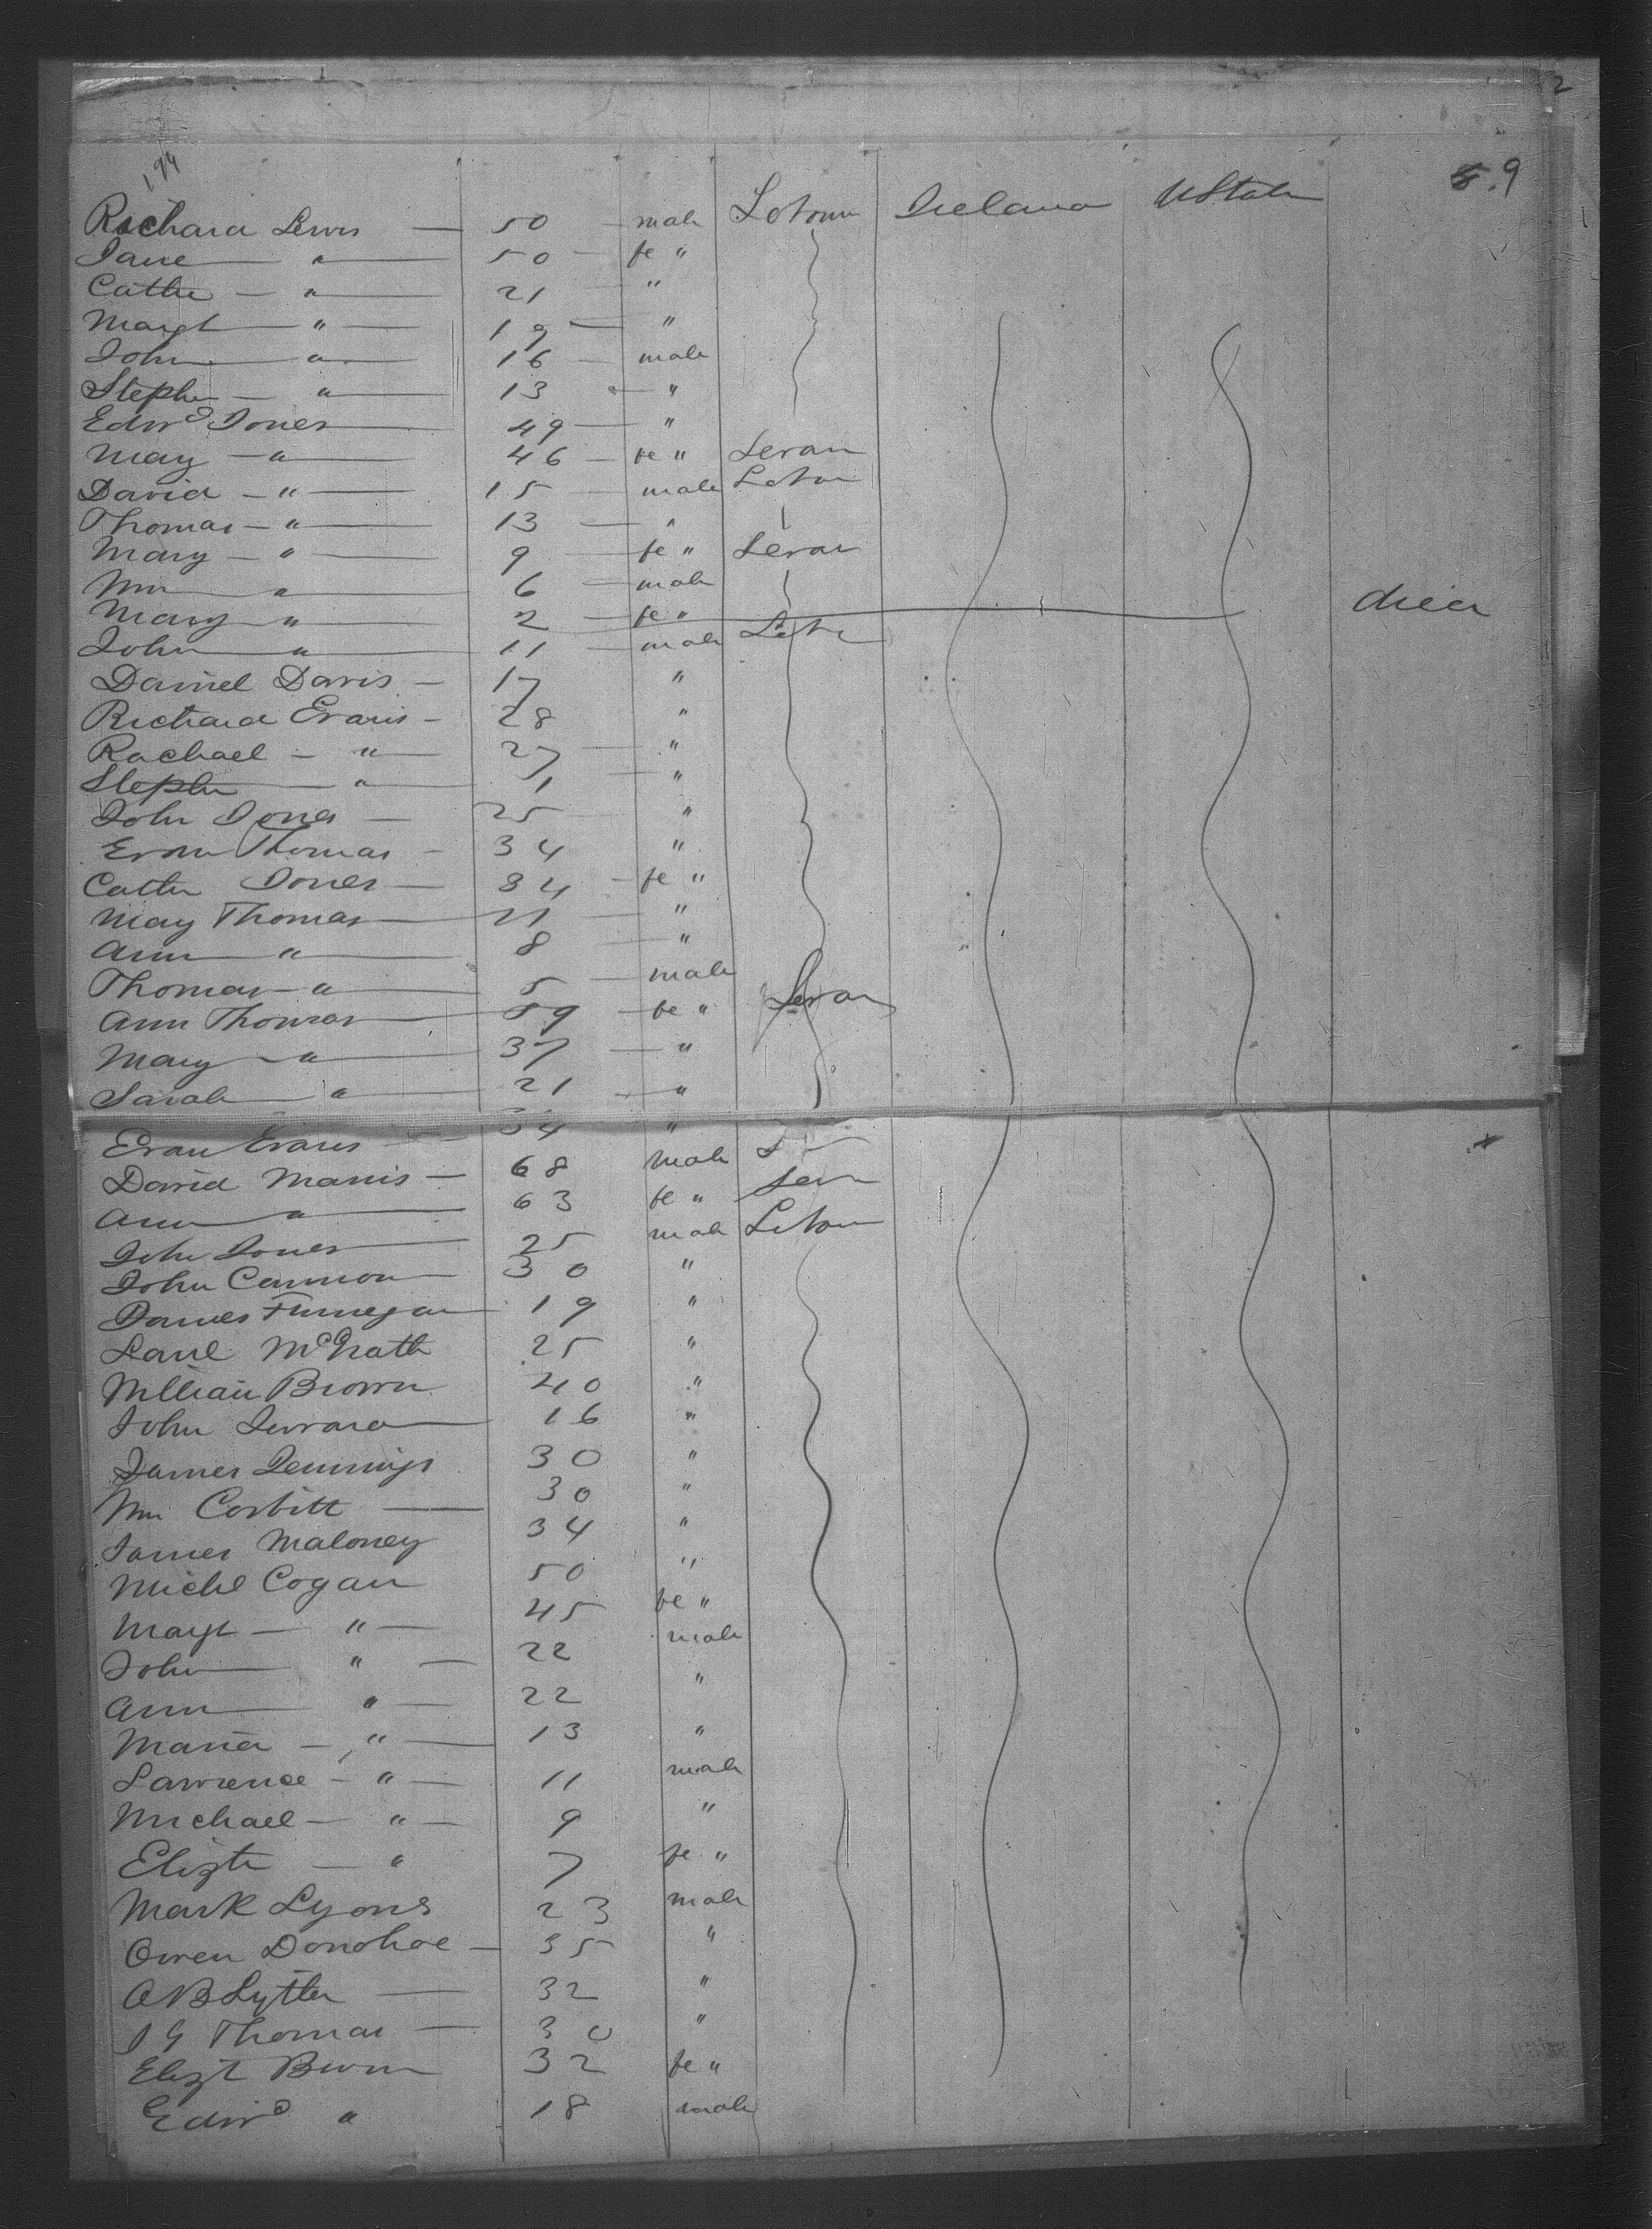 2
194
8.9
Richard Lewis — 50 — male Ireland U State
Jane — " — 50 — fe "
Cathe — " — 21 — "
Margt — " — 19 — "
John — " — 16 — male
Stephn — " — 13 — "
Edwd Jones — 49 — "
Mary — " — 46 — fe " Servan
David — " — 15 — male
Thomas — " — 13 — "
Mary — " — 9 — fe " Servan
Wm — " — 6 — male
Mary — " — 2 — fe " died
John — " — 11 — male
Daniel Davis — 17 "
Richard Evans — 28 "
Rachael — " — 27 — "
Stephn — " — 1 — "
John Jones — 25 "
Evan Thomas — 34 "
Cathe Jones — 34 — fe "
Mary Thomas — 21 — "
Ann — " — 8 — "
Thomas — " — 5 — male
Ann Thomas — 59 — fe " Servan
Mary — " — 37 — "
Sarah — " — 21 — "
Evan Evans — 34 "
David Manis — 68 male
Ann — " — 63 fe " Serv
John Jones — 25 male
John Cannon — 30 "
James Finnegan — 19 "
McGrath 25 "
William Brown 40 "
John — 16 "
James Jennings 30 "
Wm Corbitt — 30 "
James Maloney 34 "
Michl Cogan 50 "
Margt — " — 45 fe "
John — " — 22 male
Ann — " — 22 "
Maria — " — 13 "
Lawrence — " — 11 male
Michael — " — 9 "
Elizth — " 7 fe "
Mark Lyons 23 male
Owen Donohoe — 35 "
A B Lytle — 32 "
J G Thomas — 30 "
Elizt Brown 32 fe "
Edwd " 18 male